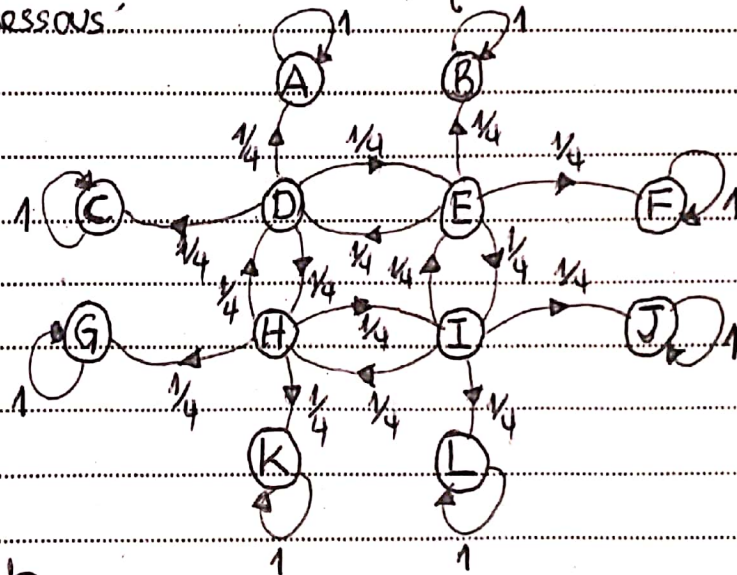 1 1
A B
1/4 1/4 1/4 1/4
1 C D E F 1
1/4 1/4
1/4 1/4 1/4 1/4 1/4
G H I J
1 1/4 1
1/4 1/4 1/4 1/4
K L
1 1